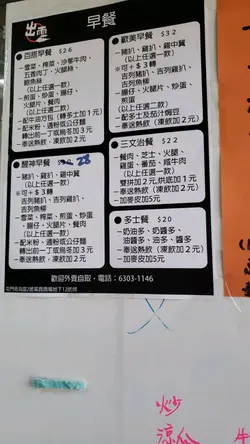 出而
早餐
●百搭早餐 $26
-雪菜、榨菜、沙爹牛肉、
五香肉丁、火腿絲、
鯪魚絲
(以上任選一款)
-煎蛋、炒蛋、腸仔、
火腿片、餐肉
(以上任選一款)
-配牛油方包 (轉多士加1元)
-配米粉、通粉或公仔麵
轉出前一丁或烏冬加3元
-奉送熱飲 (凍飲加2元)
●歐美早餐 $32
-豬扒、雞扒、雞中翼
(以上任選一款)
※可+$3轉
吉列豬扒、吉列雞扒、
吉列魚柳
-煎蛋、炒蛋、腸仔、
火腿片、餐肉
(以上任選二款)
-配多士及茄汁焗豆
-奉送熱飲 (凍飲加2元)
●醒神早餐 28
-豬扒、雞扒、雞中翼
(以上任選一款)
※可+$3轉
吉列豬扒、吉列雞扒、
吉列魚柳
-雪菜、榨菜、煎蛋、炒蛋
、腸仔、火腿片、餐肉
(以上任選一款)
-配米粉、通粉或公仔麵
轉出前一丁或烏冬加3元
-奉送熱飲 (凍飲加2元)
●三文治餐 $22
-餐肉、芝士、火腿、
雞蛋、番茄、咸牛肉
(以上任選一款)
雙拼加2元,烘底加1元
-奉送熱飲 (凍飲加2元)
-加麥皮加5元
●多士餐 $20
-奶油多、奶醬多、
油醬多、油多、醬多
(以上任選一款)
-奉送熱飲 (凍飲加2元)
-加麥皮加5元
歡迎外賣自取,電話:6303-1146
炒
涼瓜
牛